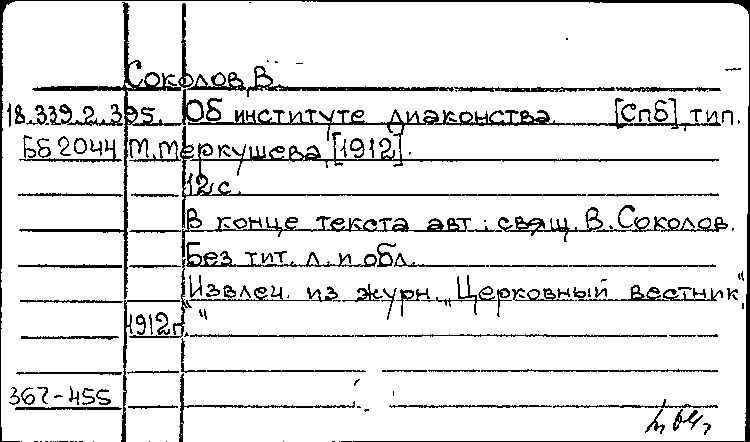 Соколов, В.
18.339.2.395. Об институте диаконства. [Спб], тип.
Бб 2044 М. Меркушева, [1912].
12 с.
В конце текста авт.: свящ. В. Соколов.
Без тит. л. и обл.
Извлеч. из журн. „Церковный вестник",
1912 г.
367-455